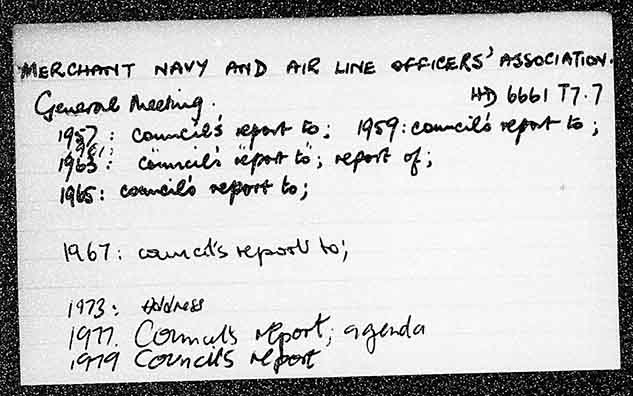 MERCHANT NAVY AND AIR LINE OFFICERS' ASSOCIATION.
General Meeting. HD 6661 T7.7
1957: council's report to; 1959: council's report to;
1961: " " "
1963: council's report to; report of;
1965: council's report to;
1967: council's report to;
1973: address
1977. Council's report; agenda
1979 Council's report